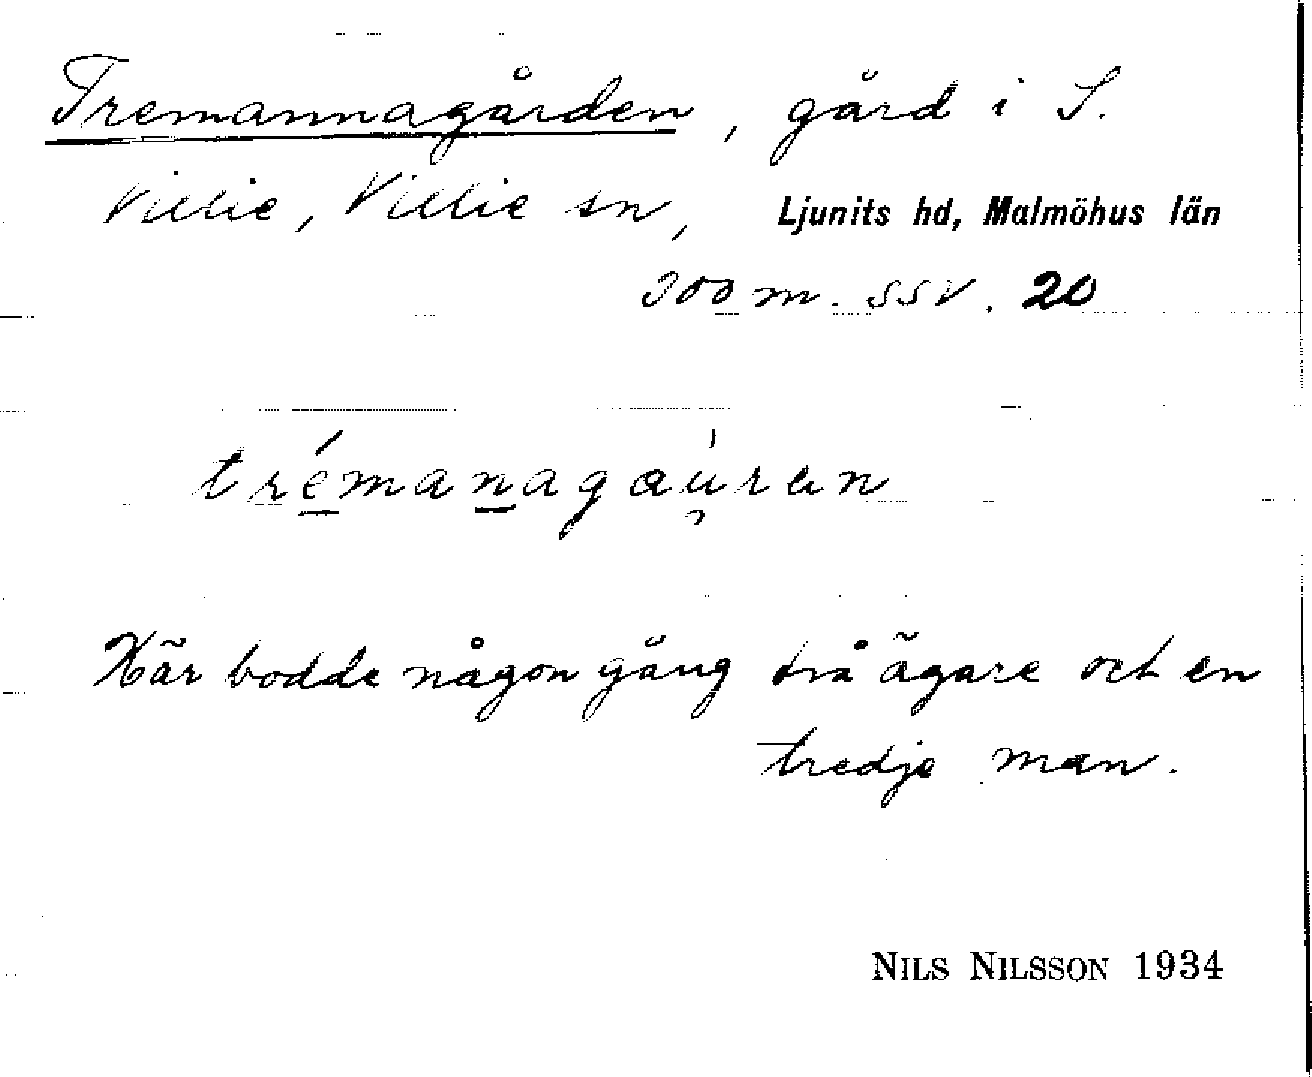 Tremannagården, gård i S.
Villie, Villie sn, Ljunits hd, Malmöhus län
300 m. SSV. 20
trémanagaúrен
Här bodde någon gång två ägare och en
tredje man.
NILS NILSSON 1934